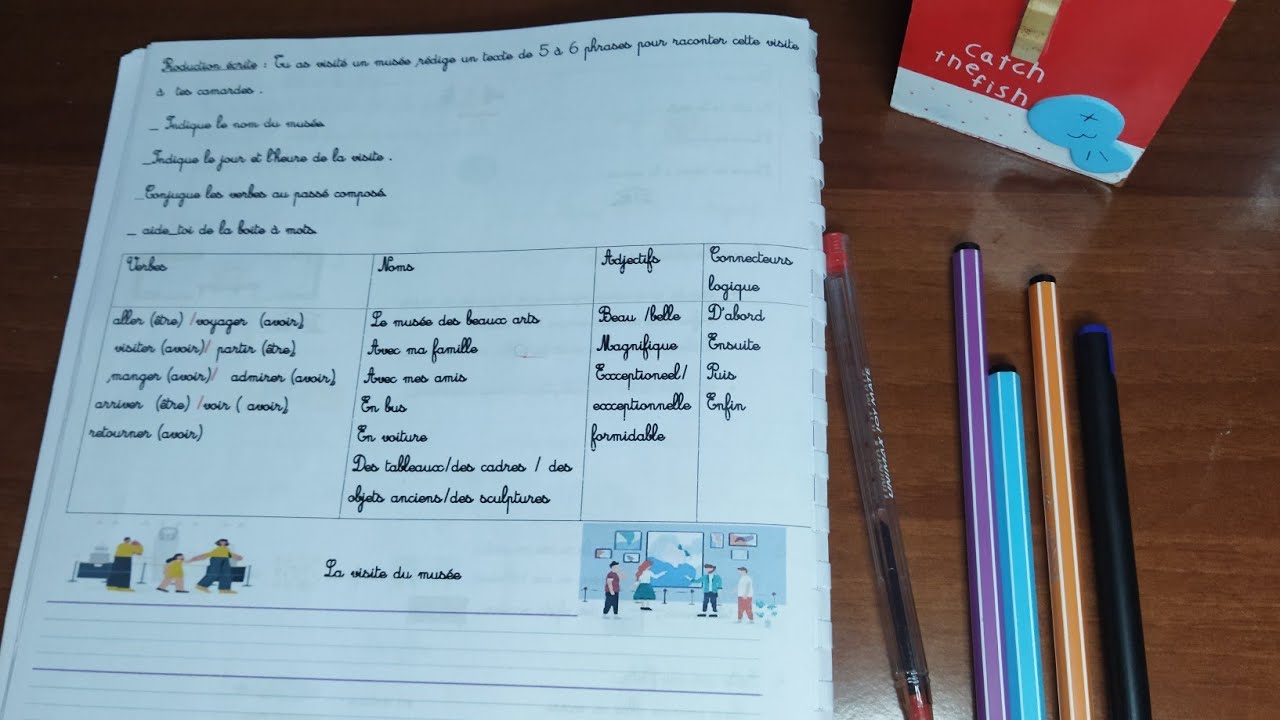 Production écrite : Tu as visité un musée, rédige un texte de 5 à 6 phrases pour raconter cette visite
à tes camardes .
_ Indique le nom du musée
_Indique le jour et l'heure de la visite .
_Conjugue les verbes au passé composé
_ aide_toi de la boite à mots
Verbes
Noms
Adjectifs
Connecteurs
logique
aller (être) /voyager (avoir)
visiter (avoir)/ partir (être)
manger (avoir)/ admirer (avoir)
arriver (être) /voir ( avoir)
retourner (avoir)
Le musée des beaux arts
Avec ma famille
Avec mes amis
En bus
En voiture
Des tableaux/des cadres / des
objets anciens/des sculptures
Beau /belle
Magnifique
Exceptioneel/
exceptionnelle
formidable
D'abord
Ensuite
Puis
Enfin
La visite du musée
catch
the fish